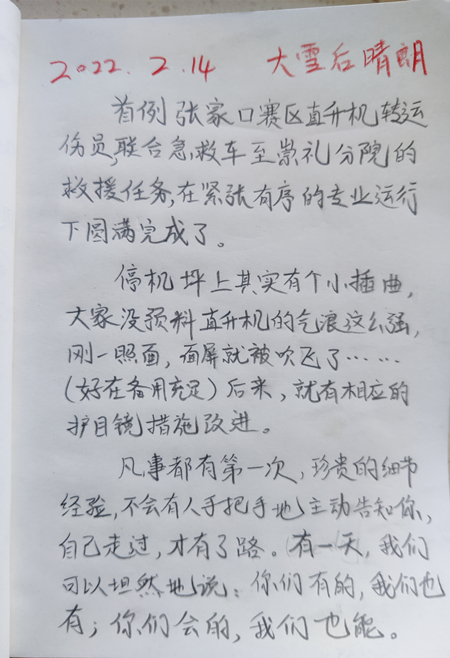 2022.2.14 大雪后晴朗
首例张家口赛区直升机转运
伤员,联合急救车至崇礼分院的
救援任务,在紧张有序的专业运行
下圆满完成了。
停机坪上其实有个小插曲,
大家没预料直升机的气浪这么强,
刚一照面,面屏就被吹飞了……
(好在备用充足)后来,就有相应的
护目镜措施改进。
凡事都有第一次,珍贵的细节
经验,不会有人手把手地主动告知你,
自己走过,才有了路。有一天,我们
可以坦然地说:你们有的,我们也
有;你们会的,我们也能。